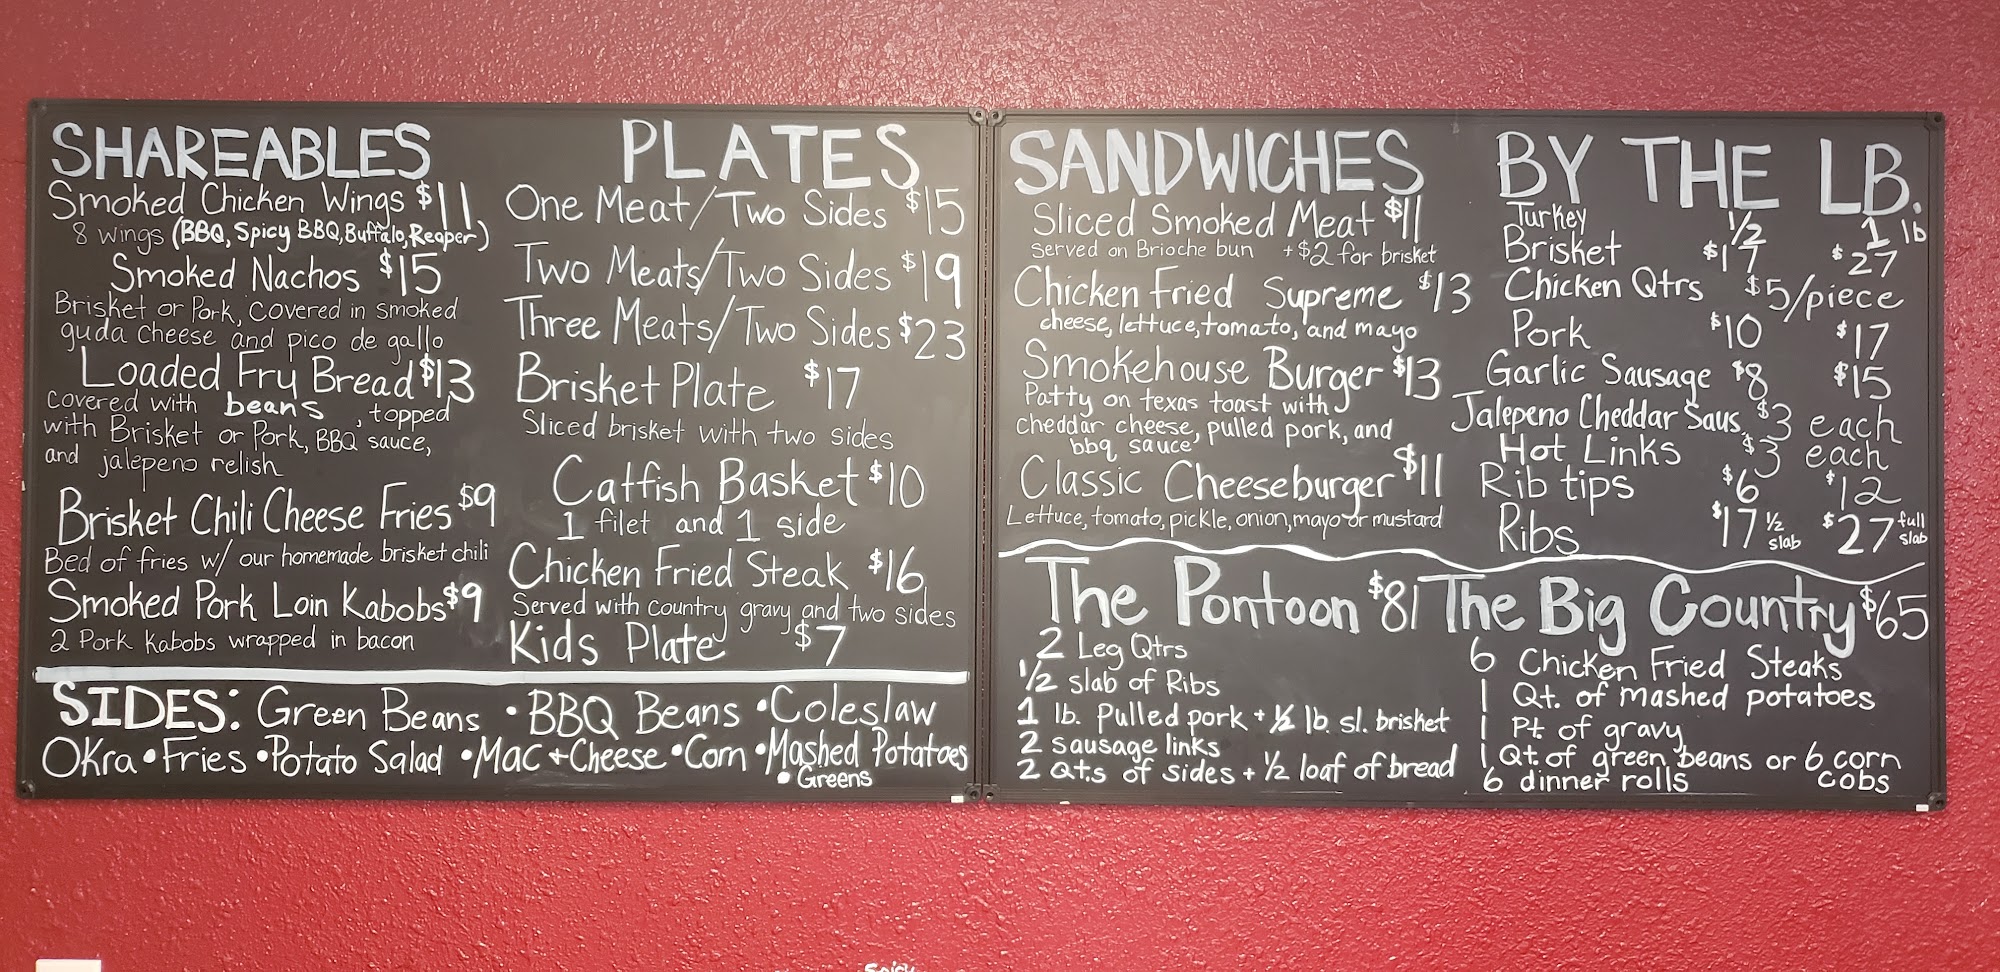 SHAREABLES
Smoked Chicken Wings $11
8 wings (BBQ, Spicy BBQ, Buffalo, Reaper)
Smoked Nachos $15
Brisket or Pork, covered in smoked
guda cheese and pico de gallo
Loaded Fry Bread $13
covered with beans, topped
with Brisket or Pork, BBQ sauce,
and jalepeno relish
Brisket Chili Cheese Fries $9
Bed of fries w/ our homemade brisket chili
Smoked Pork Loin Kabobs $9
2 Pork kabobs wrapped in bacon
PLATES
One Meat/Two Sides $15
Two Meats/Two Sides $19
Three Meats/Two Sides $23
Brisket Plate $17
Sliced brisket with two sides
Catfish Basket $10
1 filet and 1 side
Chicken Fried Steak $16
Served with country gravy and two sides
Kids Plate $7
SIDES: Green Beans • BBQ Beans • Coleslaw
Okra • Fries • Potato Salad • Mac + Cheese • Corn • Mashed Potatoes
• Greens
SANDWICHES
Sliced Smoked Meat $11
Served on Brioche bun +$2 for brisket
Chicken Fried Supreme $13
cheese, lettuce, tomato, and mayo
Smokehouse Burger $13
Patty on texas toast with
cheddar cheese, pulled pork, and
bbq sauce
Classic Cheeseburger $11
Lettuce, tomato, pickle, onion, mayo or mustard
BY THE LB.
Turkey 1/2 1 lb
Brisket $17 $27
Chicken Qtrs $5/piece
Pork $10 $17
Garlic Sausage $8 $15
Jalepeno Cheddar Saus. $3 each
Hot Links $3 each
Rib tips $6 $12
Ribs $17 1/2 slab $27 full slab
The Pontoon $81
2 Leg Qtrs
1/2 slab of Ribs
1 lb. Pulled pork + 1/2 lb. sl. brisket
2 sausage links
2 Qt.s of sides + 1/2 loaf of bread
The Big Country $65
6 Chicken Fried Steaks
1 Qt. of mashed potatoes
1 Pt of gravy
1 Qt. of green beans or 6 corn cobs
6 dinner rolls
Spicy